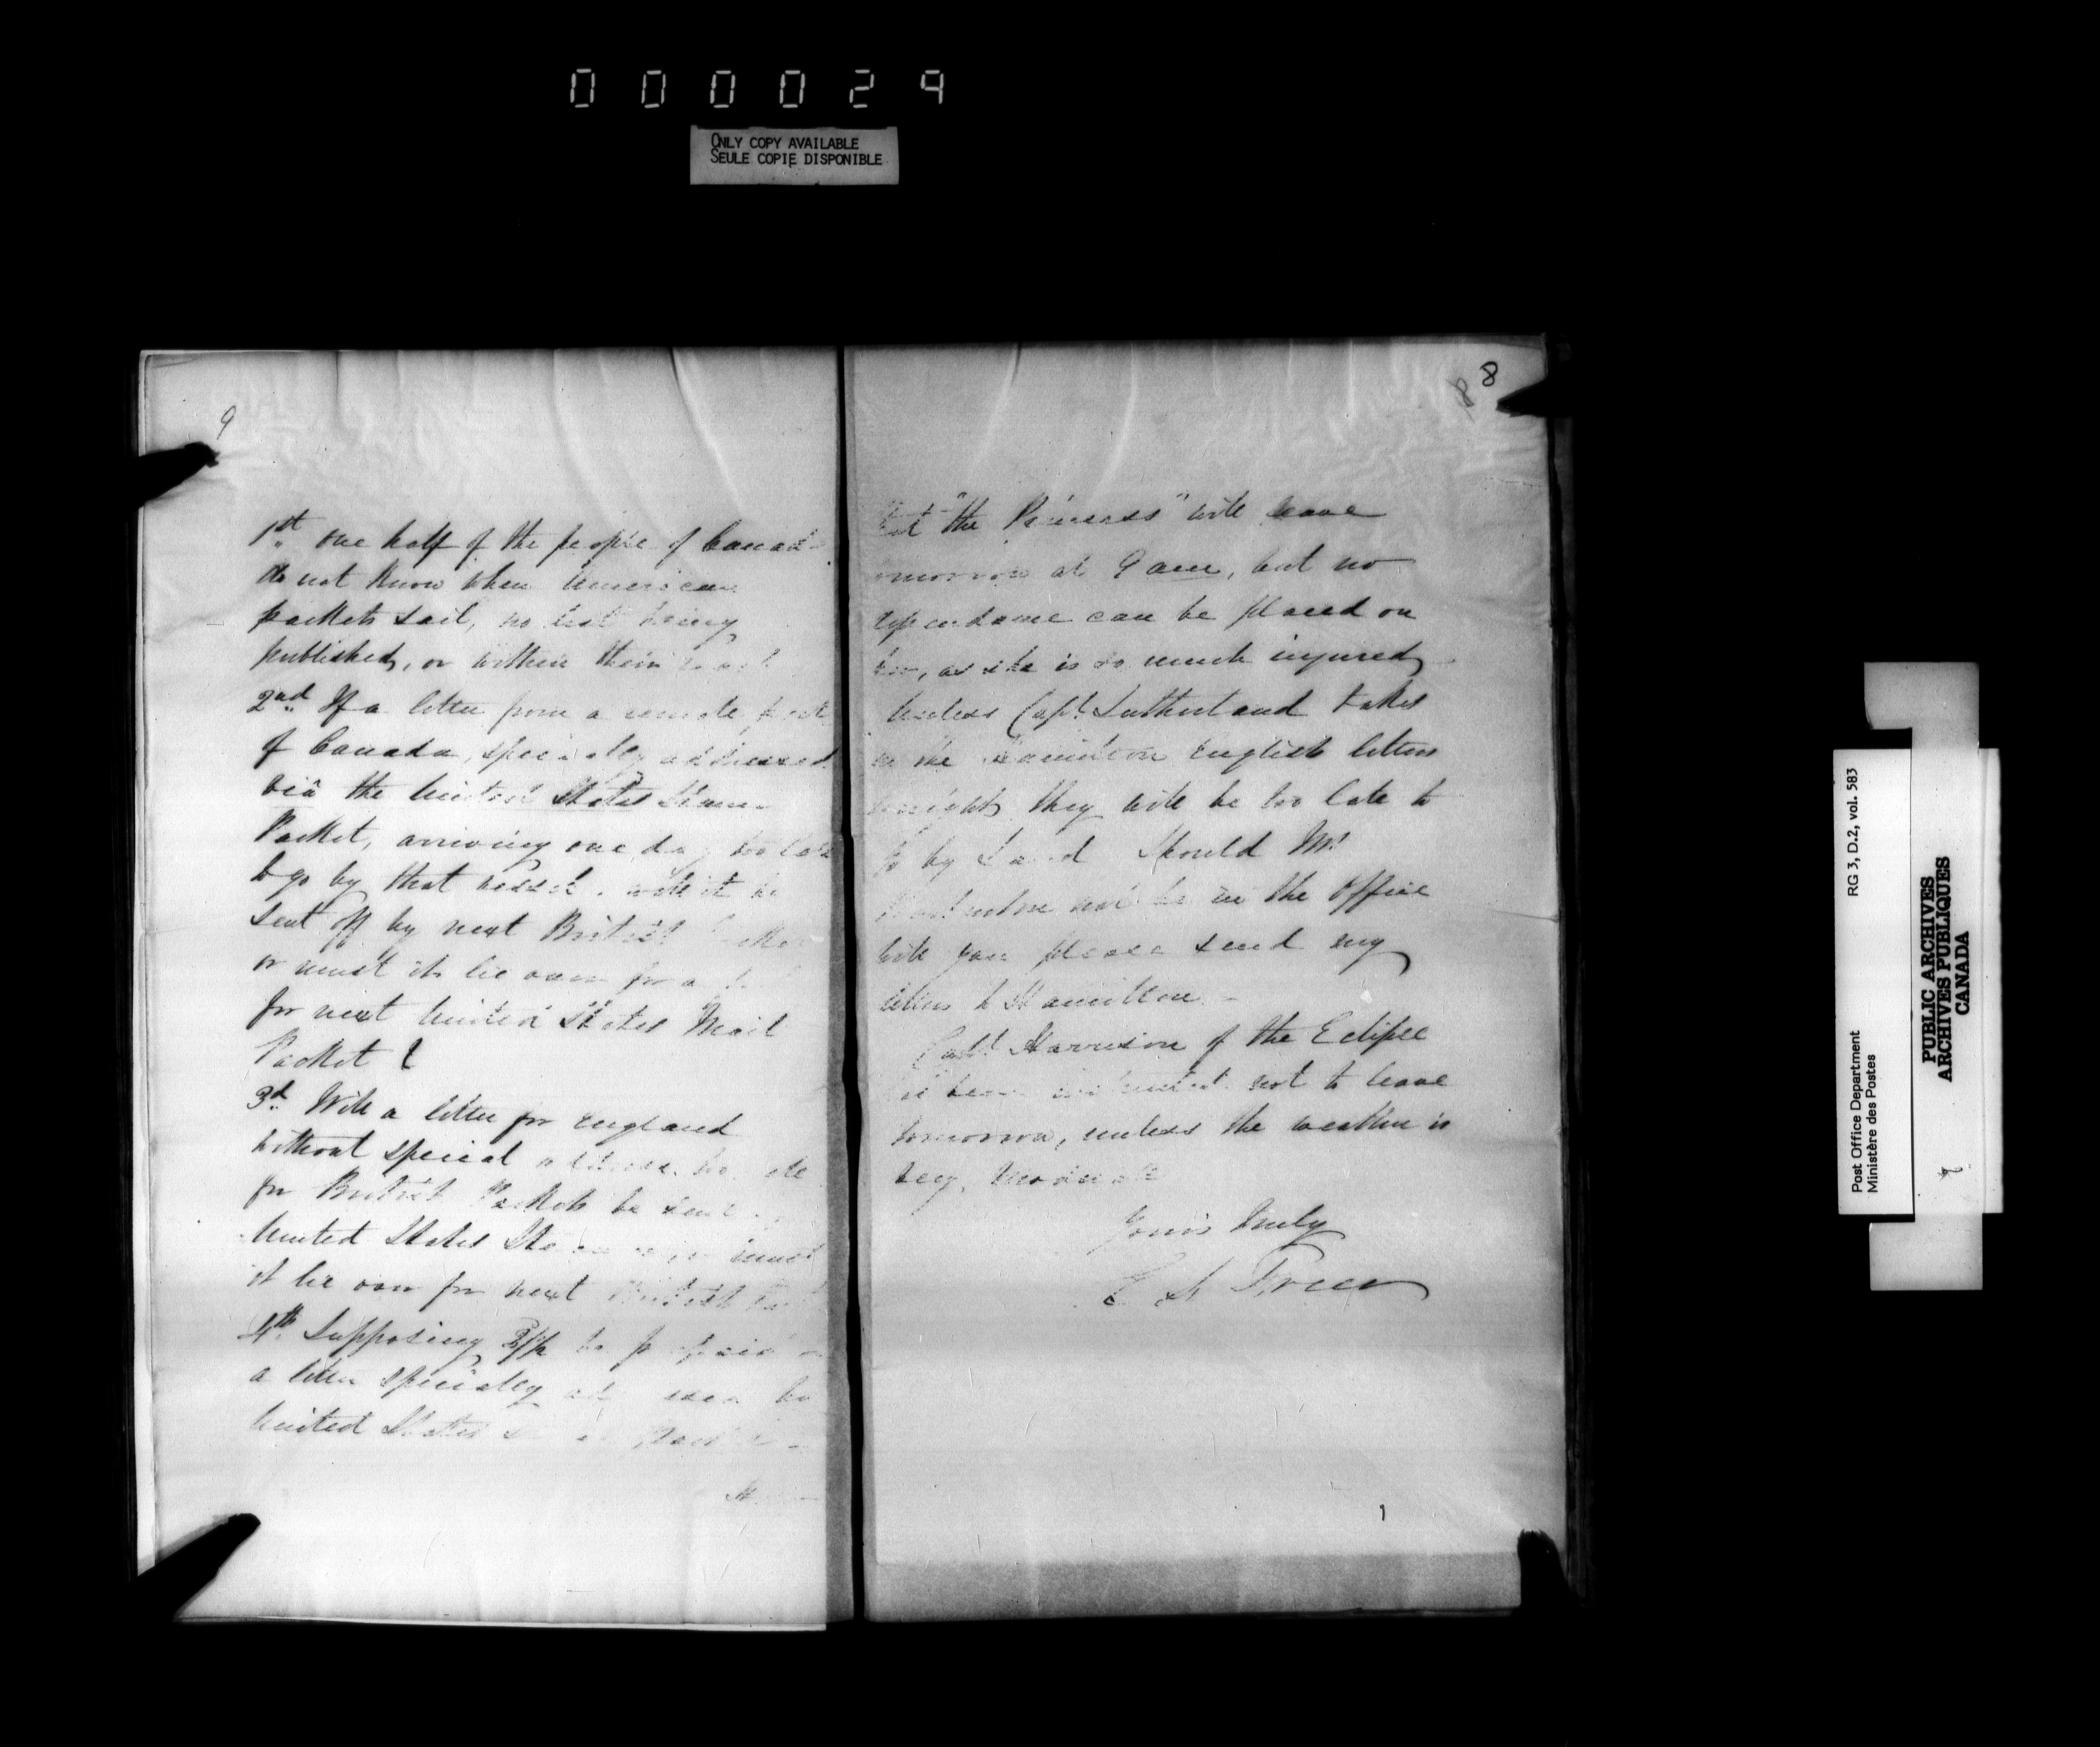 000029
ONLY COPY AVAILABLE
SEULE COPIE DISPONIBLE
9
1st one half of the people of Canada
do not know when American
packets sail, no list being
published, or within their
2nd If a letter from a remote part
of Canada, specially addressed
viâ the United States Steam
Packet, arriving one day too late
to go by that vessel, will it be
sent off by next British Packet
or must it lie over for a
for next United States Mail
Packet ?
3d Will a letter for England
without special address
for British Packets be sent
United States must
it lie over for next British
4th Supposing 2/ be prepaid on
a letter specially
United States
8
8
that "the Princess" will leave
tomorrow at 9 am, but no
dependance can be placed on
her, as she is so much injured
Unless Capt. Sutherland takes
in the Hamilton English letters
tonight, they will be too late to
go by Land Should Mr
not be in the Office
will you please send my
letters to Hamilton. -
Capt. Harrison of the Eclipse
has been not to leave
tomorrow, unless the weather is
very moderate
Yours truly
E S Freer
1
RG 3, D.2, vol. 583
Post Office Department
Ministère des Postes
PUBLIC ARCHIVES
ARCHIVES PUBLIQUES
CANADA